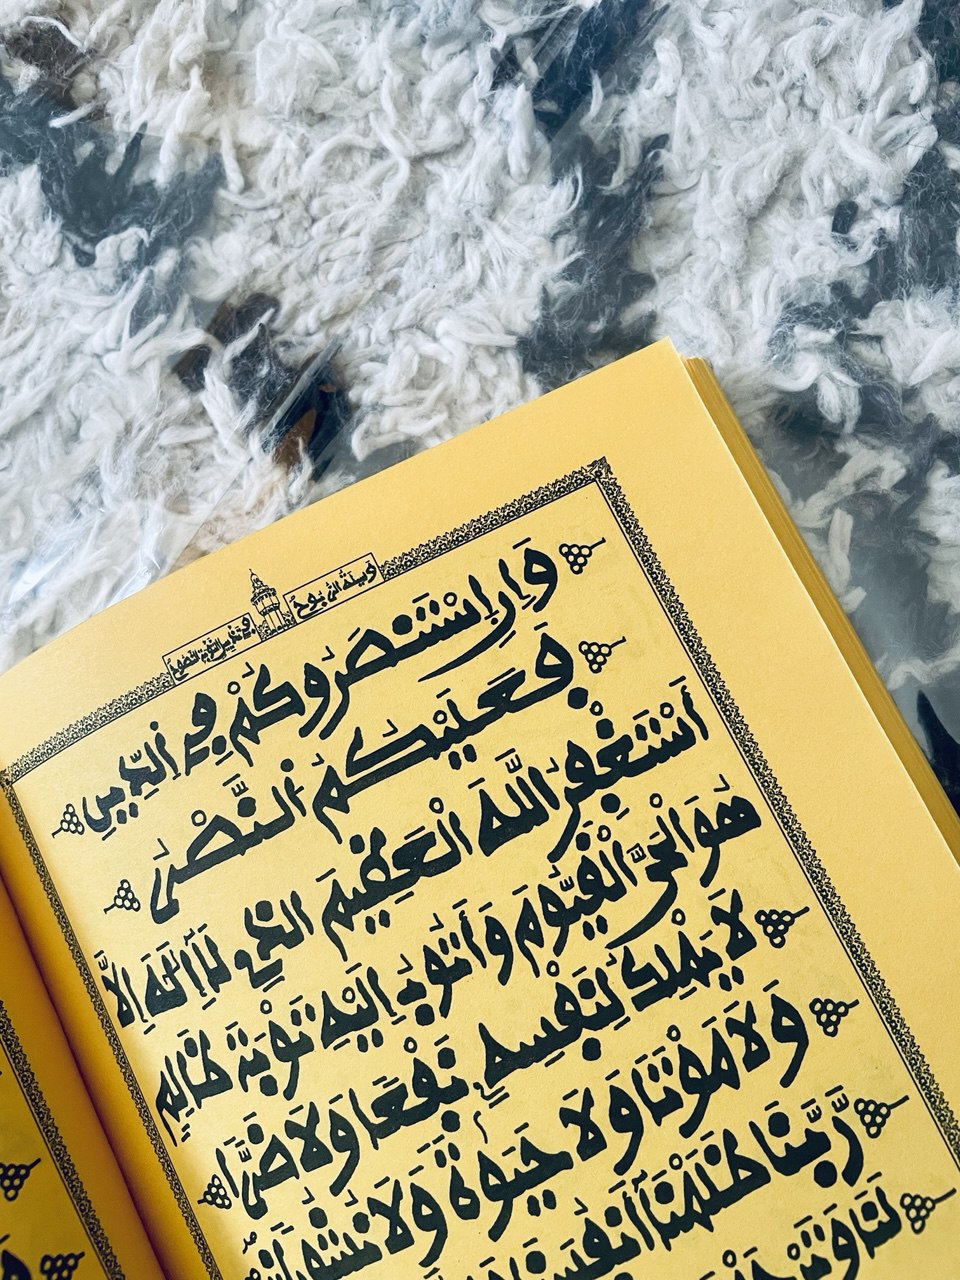 وَإِنِ اسْتَنصَرُوكُمْ فِي الدِّينِ
فَعَلَيْكُمُ النَّصْرُ
أَسْتَغْفِرُ اللَّهَ الْعَظِيمَ الذِي لَا إِلَٰهَ إِلَّا
هُوَ الْحَيُّ الْقَيُّومُ وَأَتُوبُ إِلَيْهِ تَوْبَةَ ظَالِمٍ
لَا يَمْلِكُ لِنَفْسِهِ نَفْعًا وَلَا ضَرًّا
وَلَا مَوْتًا وَلَا حَيَوٰةً وَلَا نُشُورًا
رَبَّنَا ظَلَمْنَا أَنفُسَنَا
لَنَا وَتَرْحَمْنَا